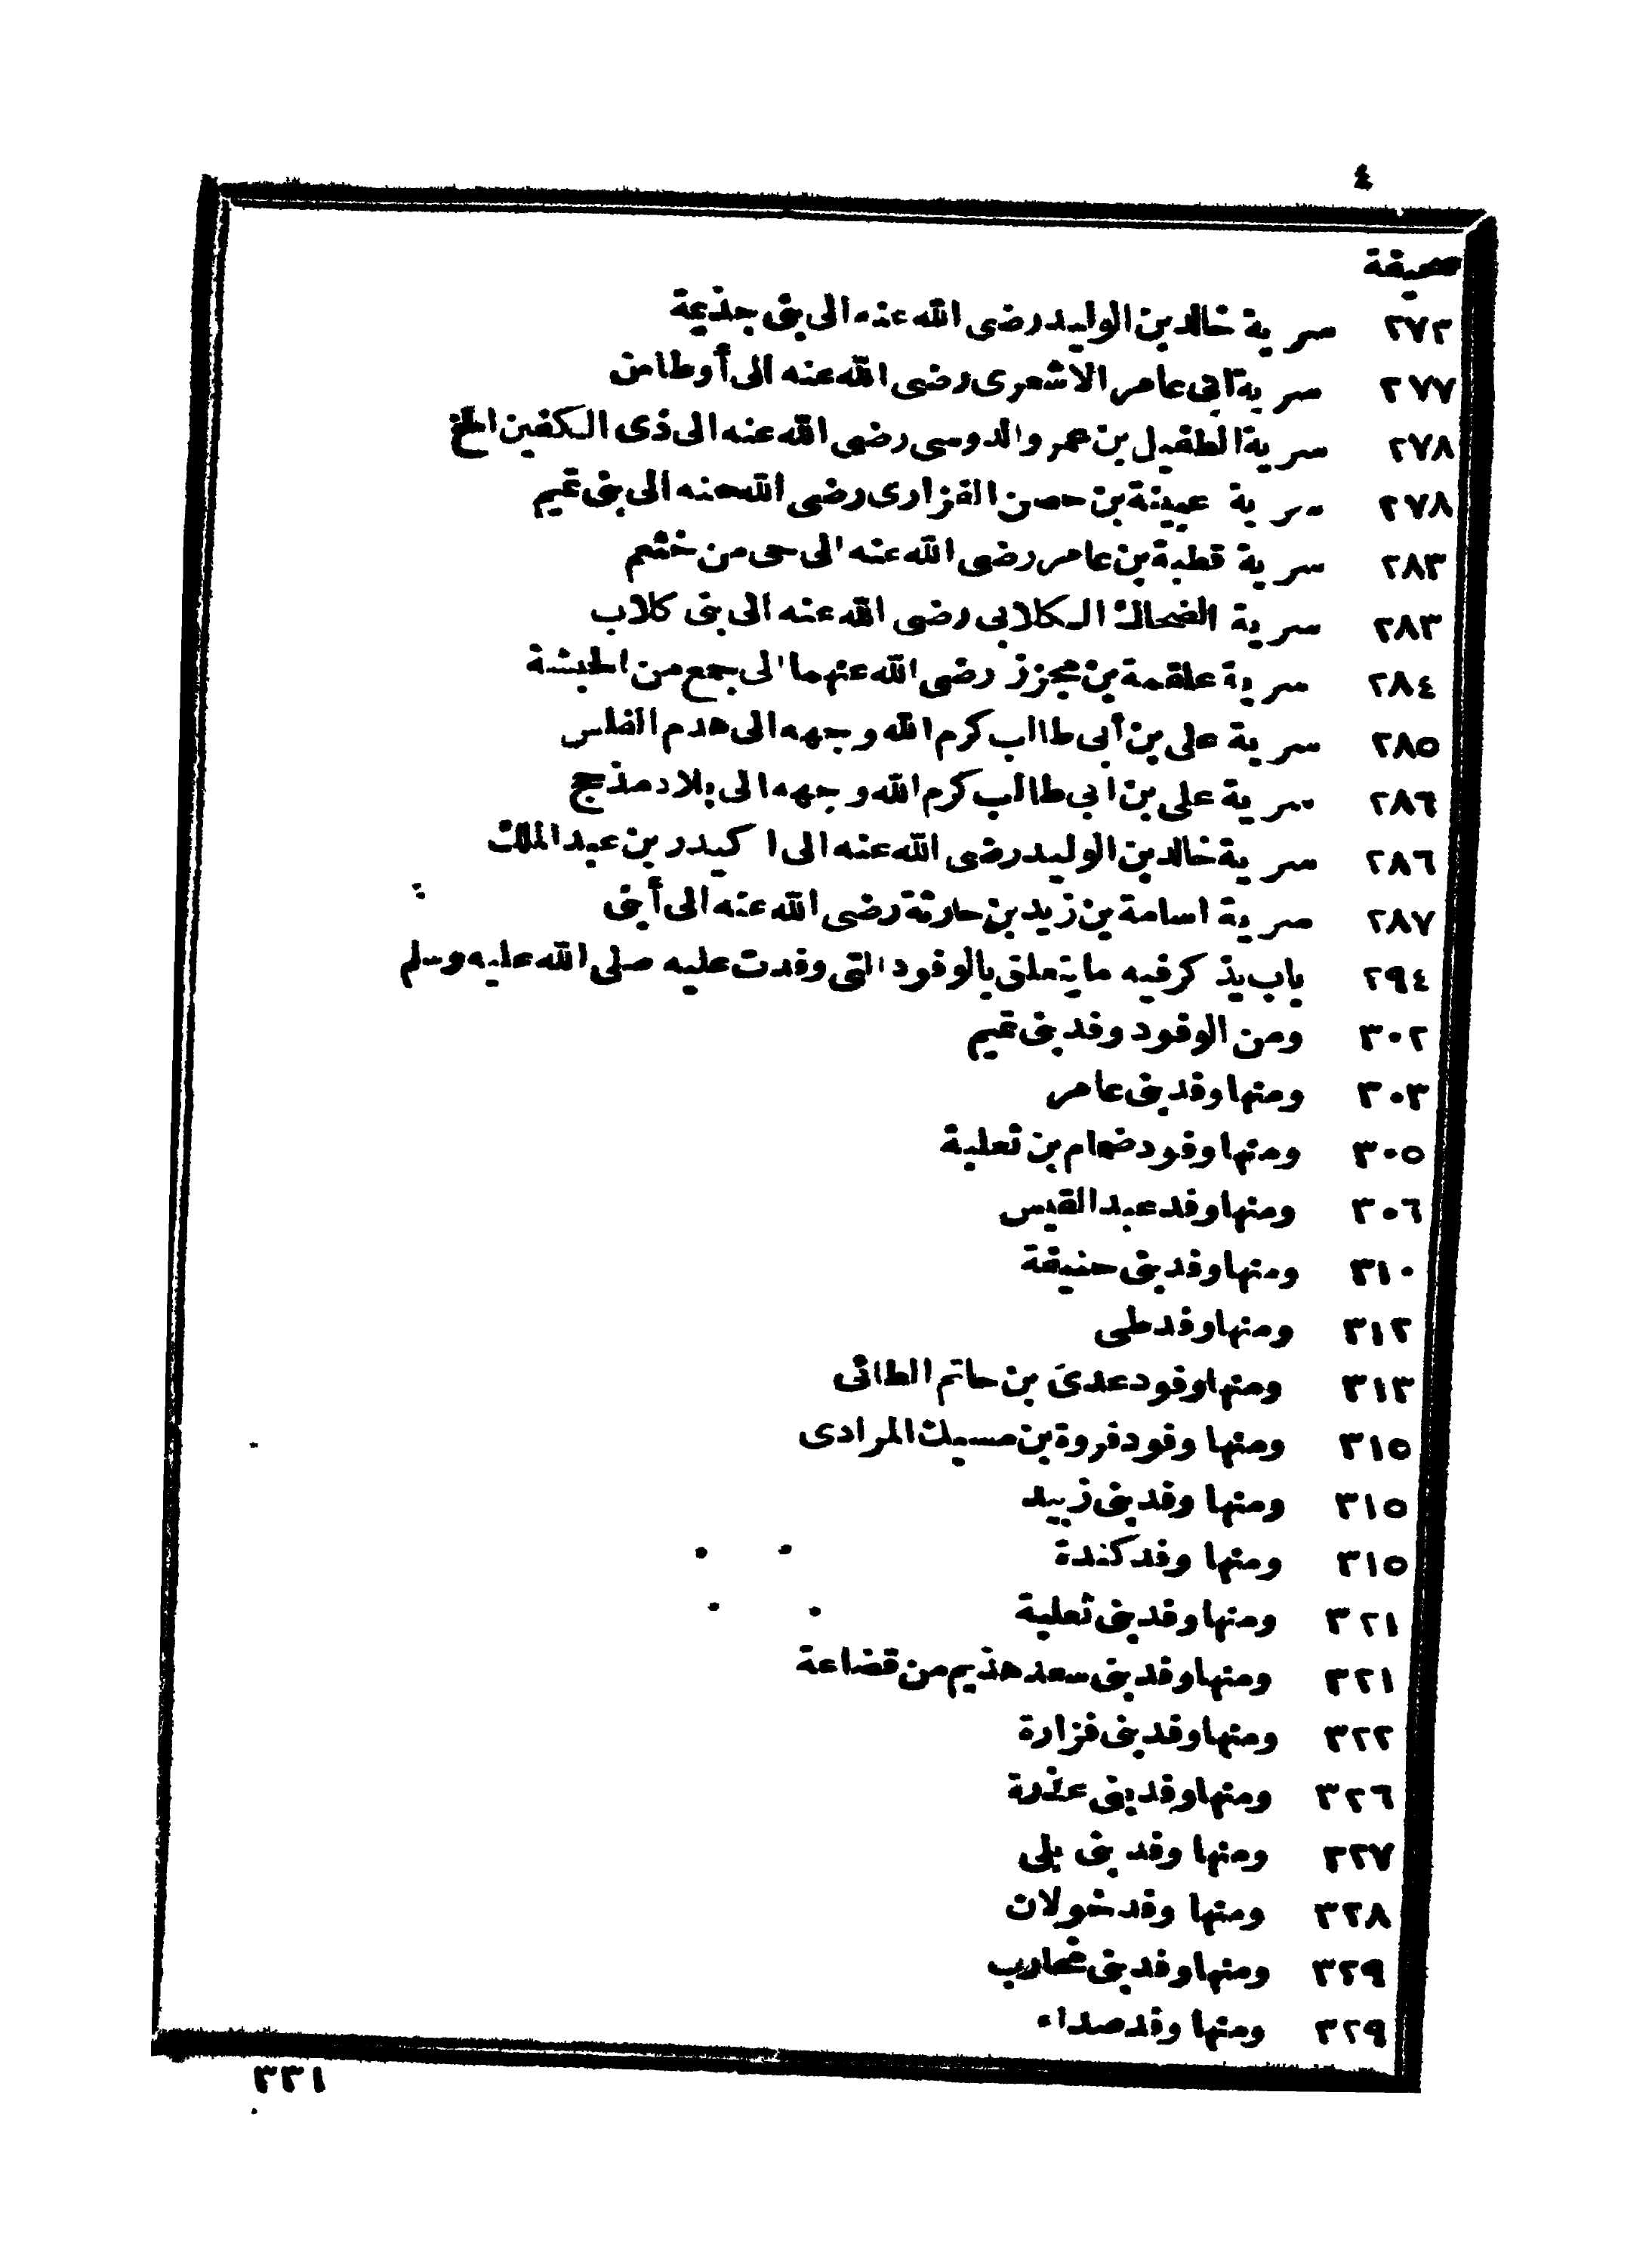 ٤
صحيفة
٢٧٢ سرية خالد بن الوليد رضى الله عنه الى بنى جذيمة
٢٧٧ سرية أبى عامر الاشعرى رضى الله عنه الى أوطاس
٢٧٨ سرية الطفيل بن عمرو الدوسى رضى الله عنه الى ذى الكفين الخ
٢٧٨ سرية عيينة بن حصن الفزارى رضى الله عنه الى بنى تميم
٢٨٣ سرية قطبة بن عامر رضى الله عنه الى حى من خثعم
٢٨٣ سرية الضحاك الكلابى رضى الله عنه الى بنى كلاب
٢٨٤ سرية علقمة بن مجزز رضى الله عنهما الى جمع من الحبشة
٢٨٥ سرية على بن أبى طالب كرم الله وجهه الى هدم الفلس
٢٨٦ سرية على بن ابى طالب كرم الله وجهه الى بلاد مذحج
٢٨٦ سرية خالد بن الوليد رضى الله عنه الى اكيدر بن عبد الملك
٢٨٧ سرية اسامة بن زيد بن حارثة رضى الله عنه الى أبنى
٢٩٤ باب يذكر فيه ما يتعلق بالوفود التى وفدت عليه صلى الله عليه وسلم
٣٠٢ ومن الوفود وفد بنى تميم
٣٠٣ ومنها وفد بنى عامر
٣٠٥ ومنها وفود ضمام بن ثعلبة
٣٠٦ ومنها وفد عبد القيس
٣١٠ ومنها وفد بنى حنيفة
٣١٢ ومنها وفد طى
٣١٣ ومنها وفود عدى بن حاتم الطائى
٣١٥ ومنها وفود فروة بن مسيك المرادى
٣١٥ ومنها وفد بنى زبيد
٣١٥ ومنها وفد كندة
٣٢١ ومنها وفد بنى ثعلبة
٣٢١ ومنها وفد بنى سعد هذيم من قضاعة
٣٢٢ ومنها وفد بنى فزارة
٣٢٦ ومنها وفد بنى عذرة
٣٢٧ ومنها وفد بنى بلى
٣٢٨ ومنها وفد خولان
٣٢٩ ومنها وفد بنى محارب
٣٢٩ ومنها وفد صداء
٣٣١